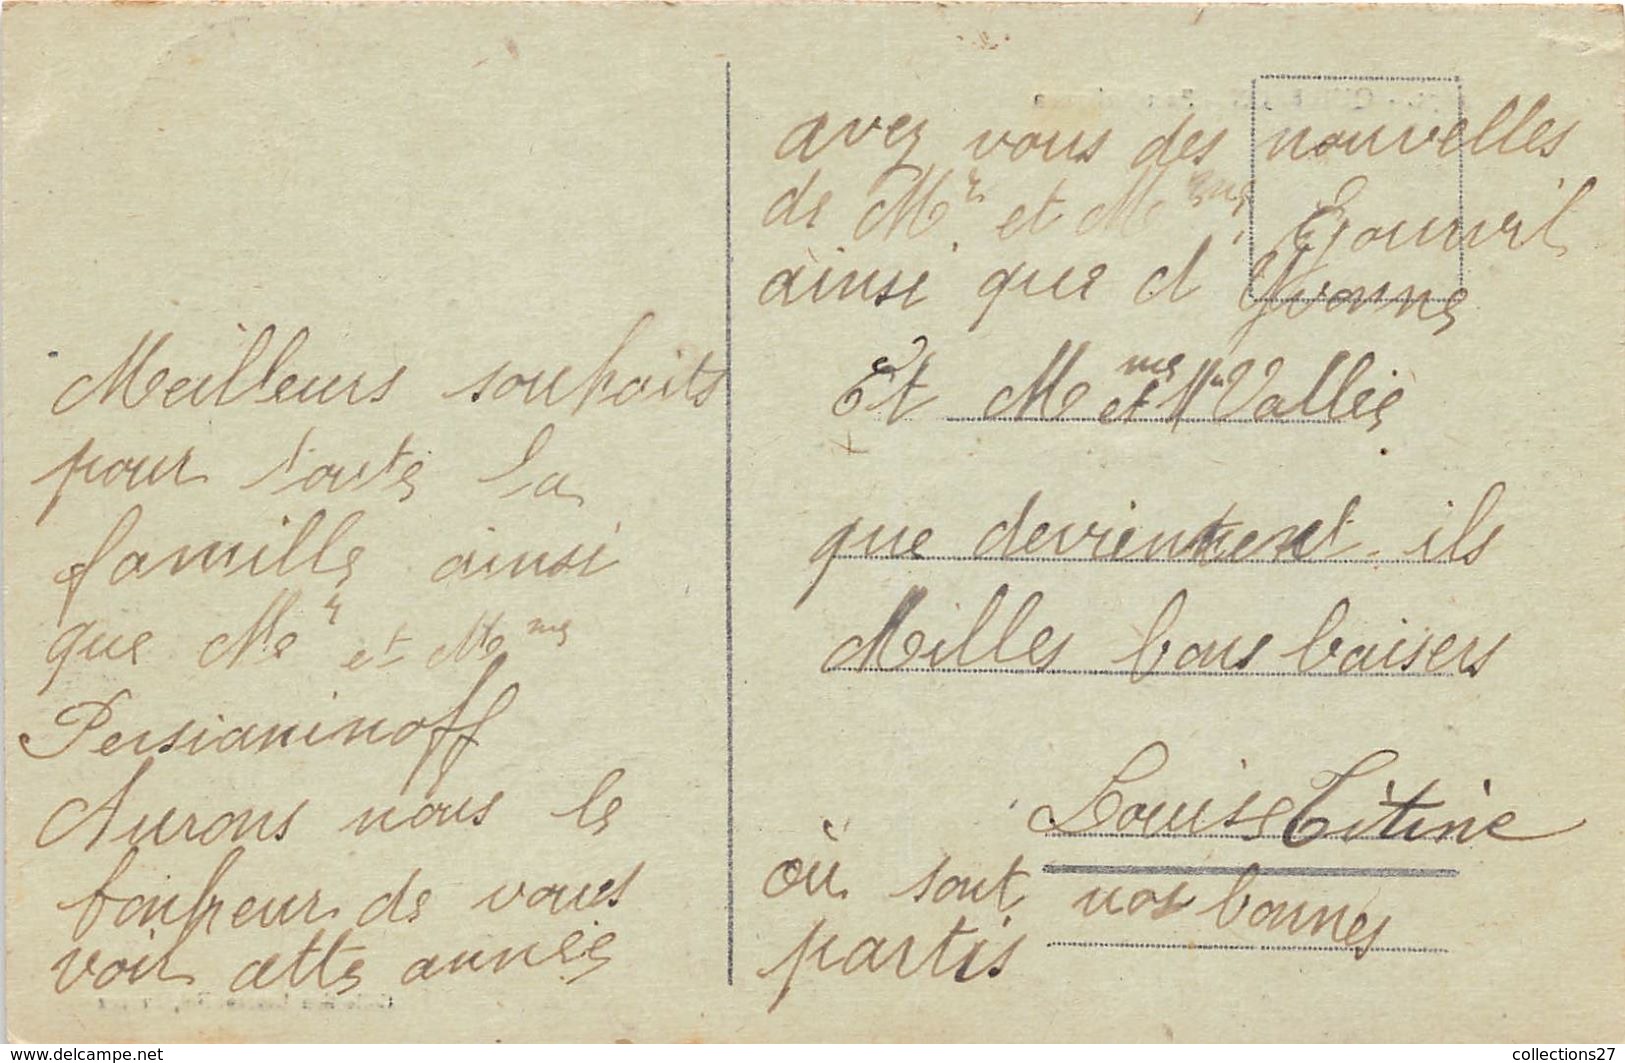 Meilleurs souhaits
pour toute la
famille ainsi
que Mr et Mme
Persianinoff
Aurons nous le
bonheur de vous
voir cette année
avez vous des nouvelles
de Mr et Mme
ainsi que d'Yvonne
Et Mme et Mr Vallée
que deviennent ils
Milles bons baisers
Louise Titine
où sont nos bonnes
partis
www.delcampe.net
collections27